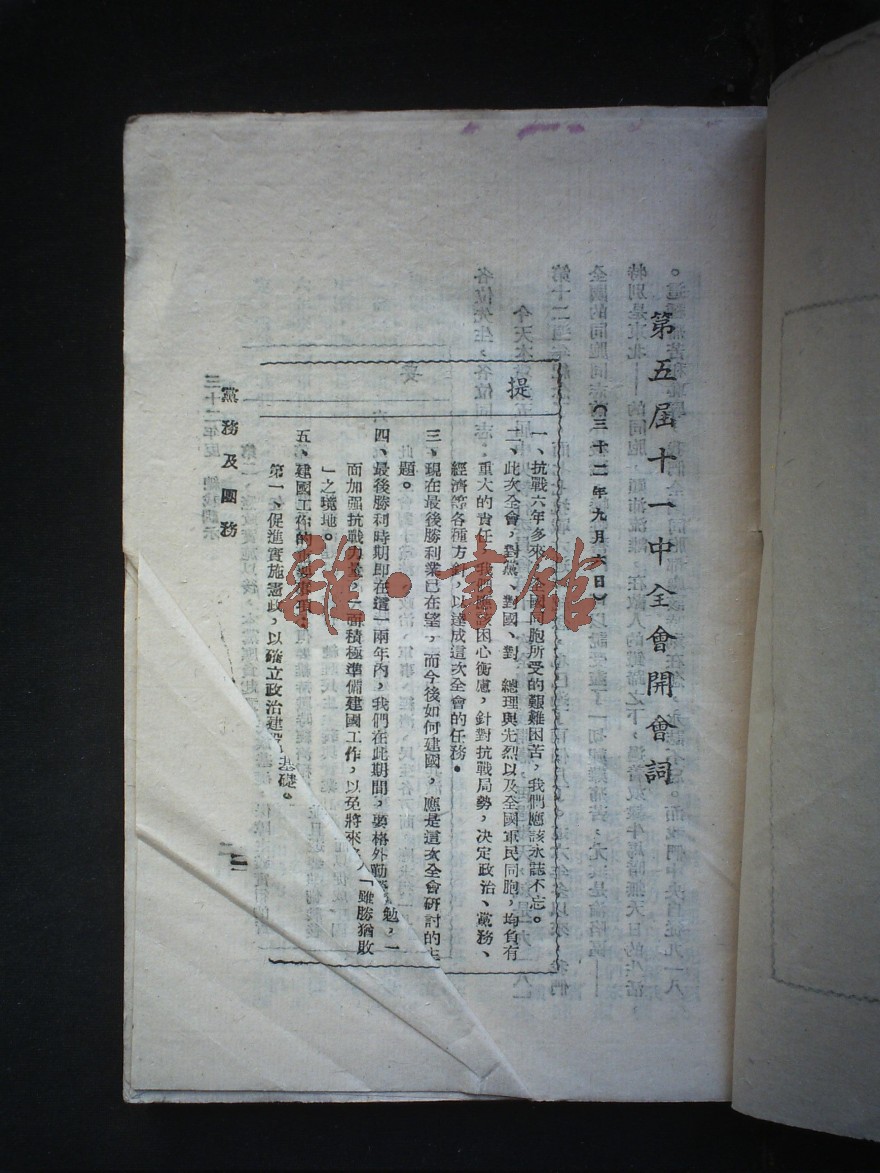 第五屆十一中全會開會詞
(三十二年九月六日)
提
一、抗戰六年多來,全國同胞所受的艱難困苦,我們應該永誌不忘。
二、此次全會,對黨、對國、對 總理與先烈以及全國軍民同胞,均負有
重大的責任,我們應困心衡慮,針對抗戰局勢,決定政治、黨務、
經濟等各種方針,以達成這次全會的任務。
三、現在最後勝利業已在望,而今後如何建國,應是這次全會研討的主
題。
四、最後勝利時期即在這一兩年內,我們在此期間,要格外勤 勉,一
而加强抗戰力量,一面積極準備建國工作,以免將來 入「雖勝猶敗
」之境地。
五、建國工作的 要 項
第一、促進實施憲政,以確立政治建設 基礎。
黨務及團務
一
雜·書館